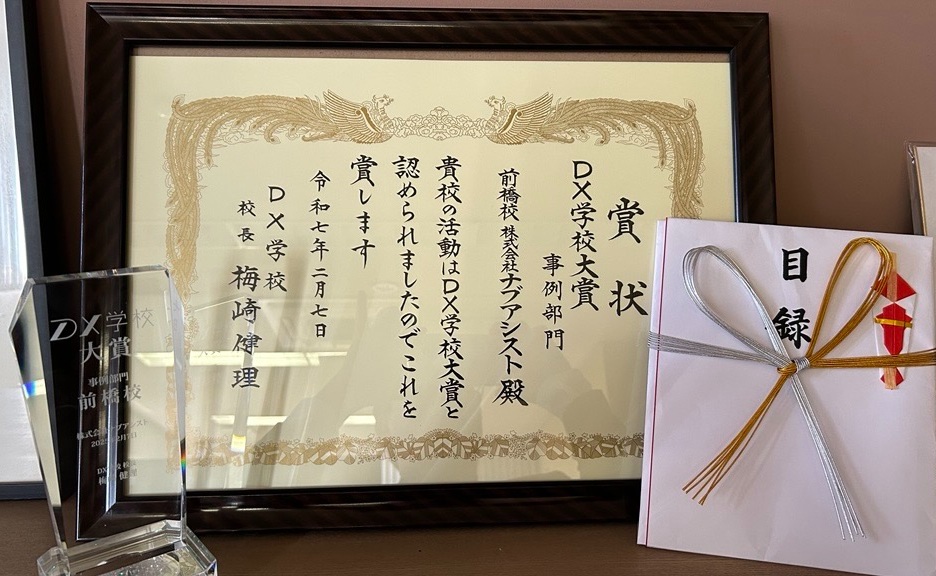 賞状
DX学校大賞
事例部門
前橋校 株式会社ナブアシスト 殿
貴校の活動はDX学校大賞と
認められましたのでこれを
賞します
令和七年二月七日
DX学校
校長 梅崎健理
目録
DX学校
大賞
事例部門
前橋校